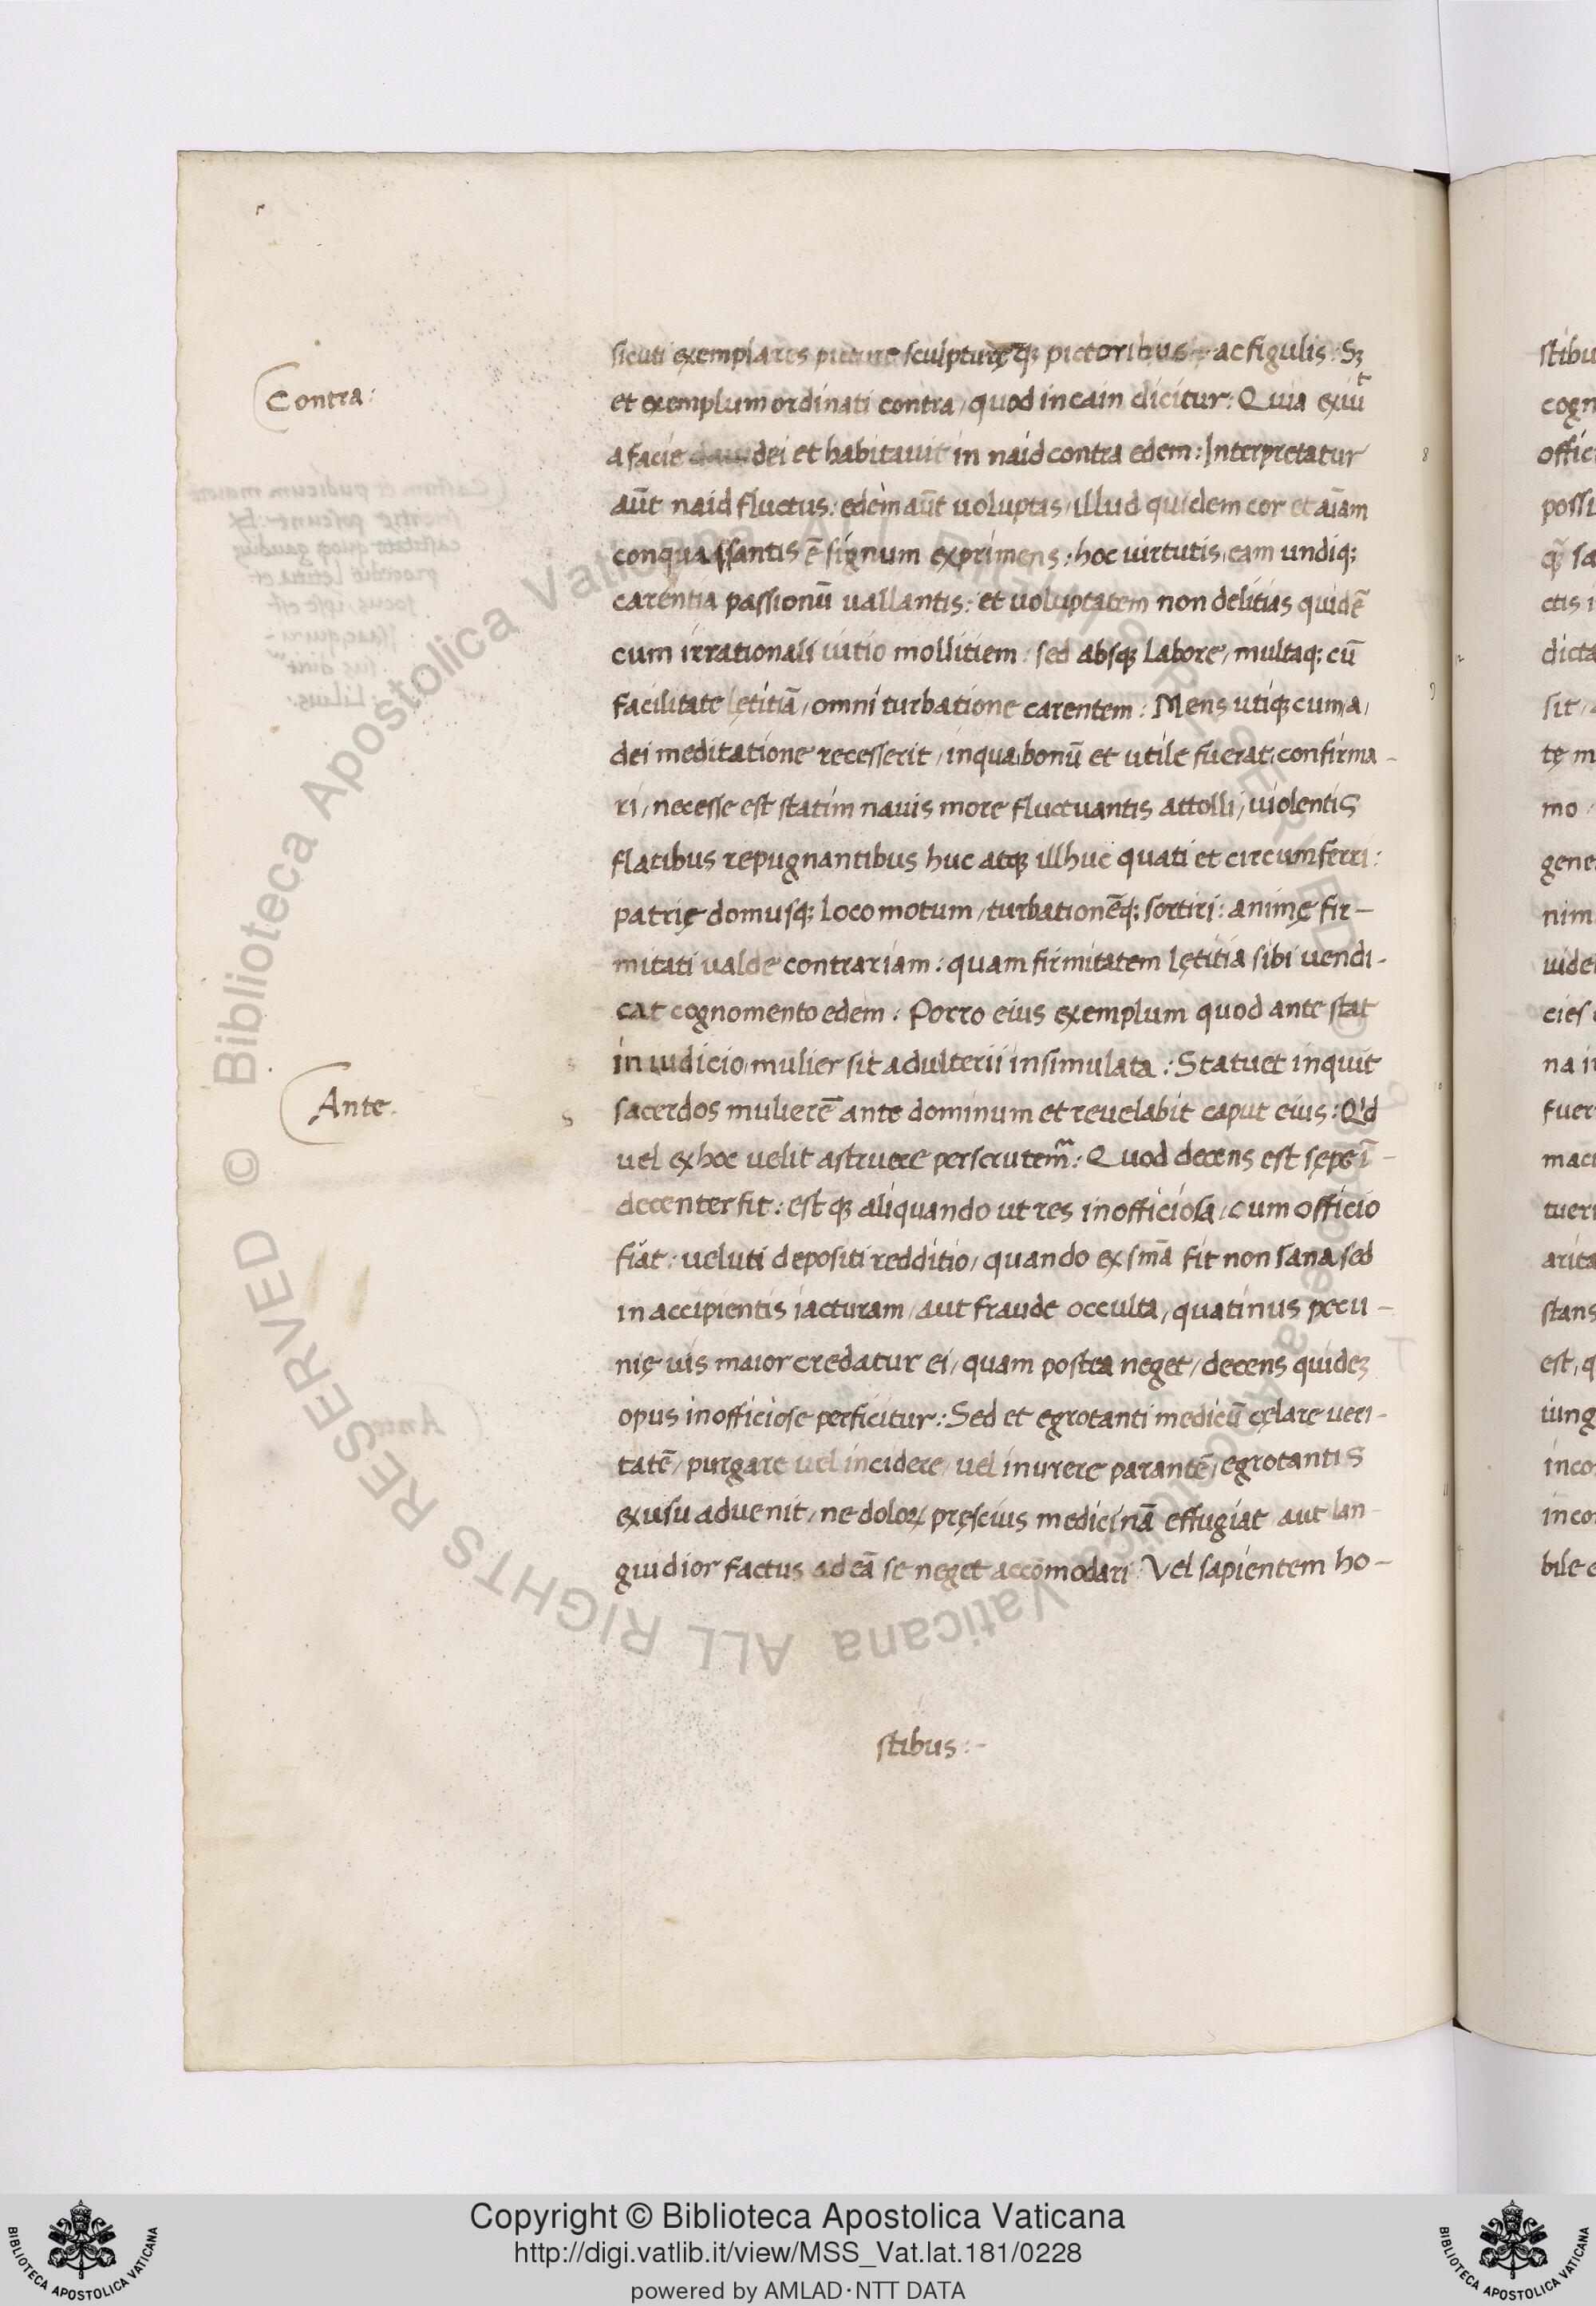 Contra:
sicuti exemplares picture sculpturęq; pictoribus ac figulis: Sꝫ
et exemplum ordinati contra, quod in cain dicitur: Quia exiut
a facie dei et habitauit in naid contra edem: Interpretatur
aūt naid fluctus: edem aūt uoluptas, illud quidem cor et aīam
conquassantis ē signum exprimens: hoc uirtutis, eam undiq;
carentia passionū uallantis: et uoluptatem non delitias quidē
cum irrationali uitio mollitiem: sed absq; labore, multaq; cū
facilitate lętitiā, omni turbatione carentem: Mens utiq; cum, a,
dei meditatione recesserit, in qua bonū et utile fuerat, confirma-
ri, necesse est statim nauis more fluctuantis attolli, uiolentis
flatibus repugnantibus huc atq; illhuc quati et circumferri:
patrię domusq; loco motum, turbationēq; sortiri: animę fir-
mitati ualde contrariam: quam firmitatem lętitia sibi uendi-
cat cognomento edem: Porro eius exemplum quod ante stat
in iudicio, mulier sit adulterii insimulata: Statuet inquit
Ante.
sacerdos mulierē ante dominum et reuelabit caput eius: Qd
uel ex hoc uelit astruere perscrutem̄: Quod decens est sępe ī-
decenter fit: estq; aliquando ut res inofficiosa, cum officio
fiat: ueluti depositi redditio, quando ex smā fit non sana, sed
in accipientis iacturam, aut fraude occulta, quatinus pecu-
nię uis maior credatur ei, quam postea neget, decens quideꝫ
opus inofficiose perficitur: Sed et egrotanti medicū cęlare ueri-
tatē, purgare uel incidere, uel inurere parantē, egrotantis
ex usu aduenit, ne doloꝝ pręscius medicinā effugiat, aut lan-
guidior factus ad eā se neget accōmodari: Vel sapientem ho-
stibus:-
Copyright © Biblioteca Apostolica Vaticana
http://digi.vatlib.it/view/MSS_Vat.lat.181/0228
powered by AMLAD·NTT DATA
BIBLIOTECA APOSTOLICA VATICANA
BIBLIOTECA APOSTOLICA VATICANA
© Biblioteca Apostolica Vaticana ALL RIGHTS RESERVED © Biblioteca Apostolica Vaticana ALL RIGHTS RESERVED